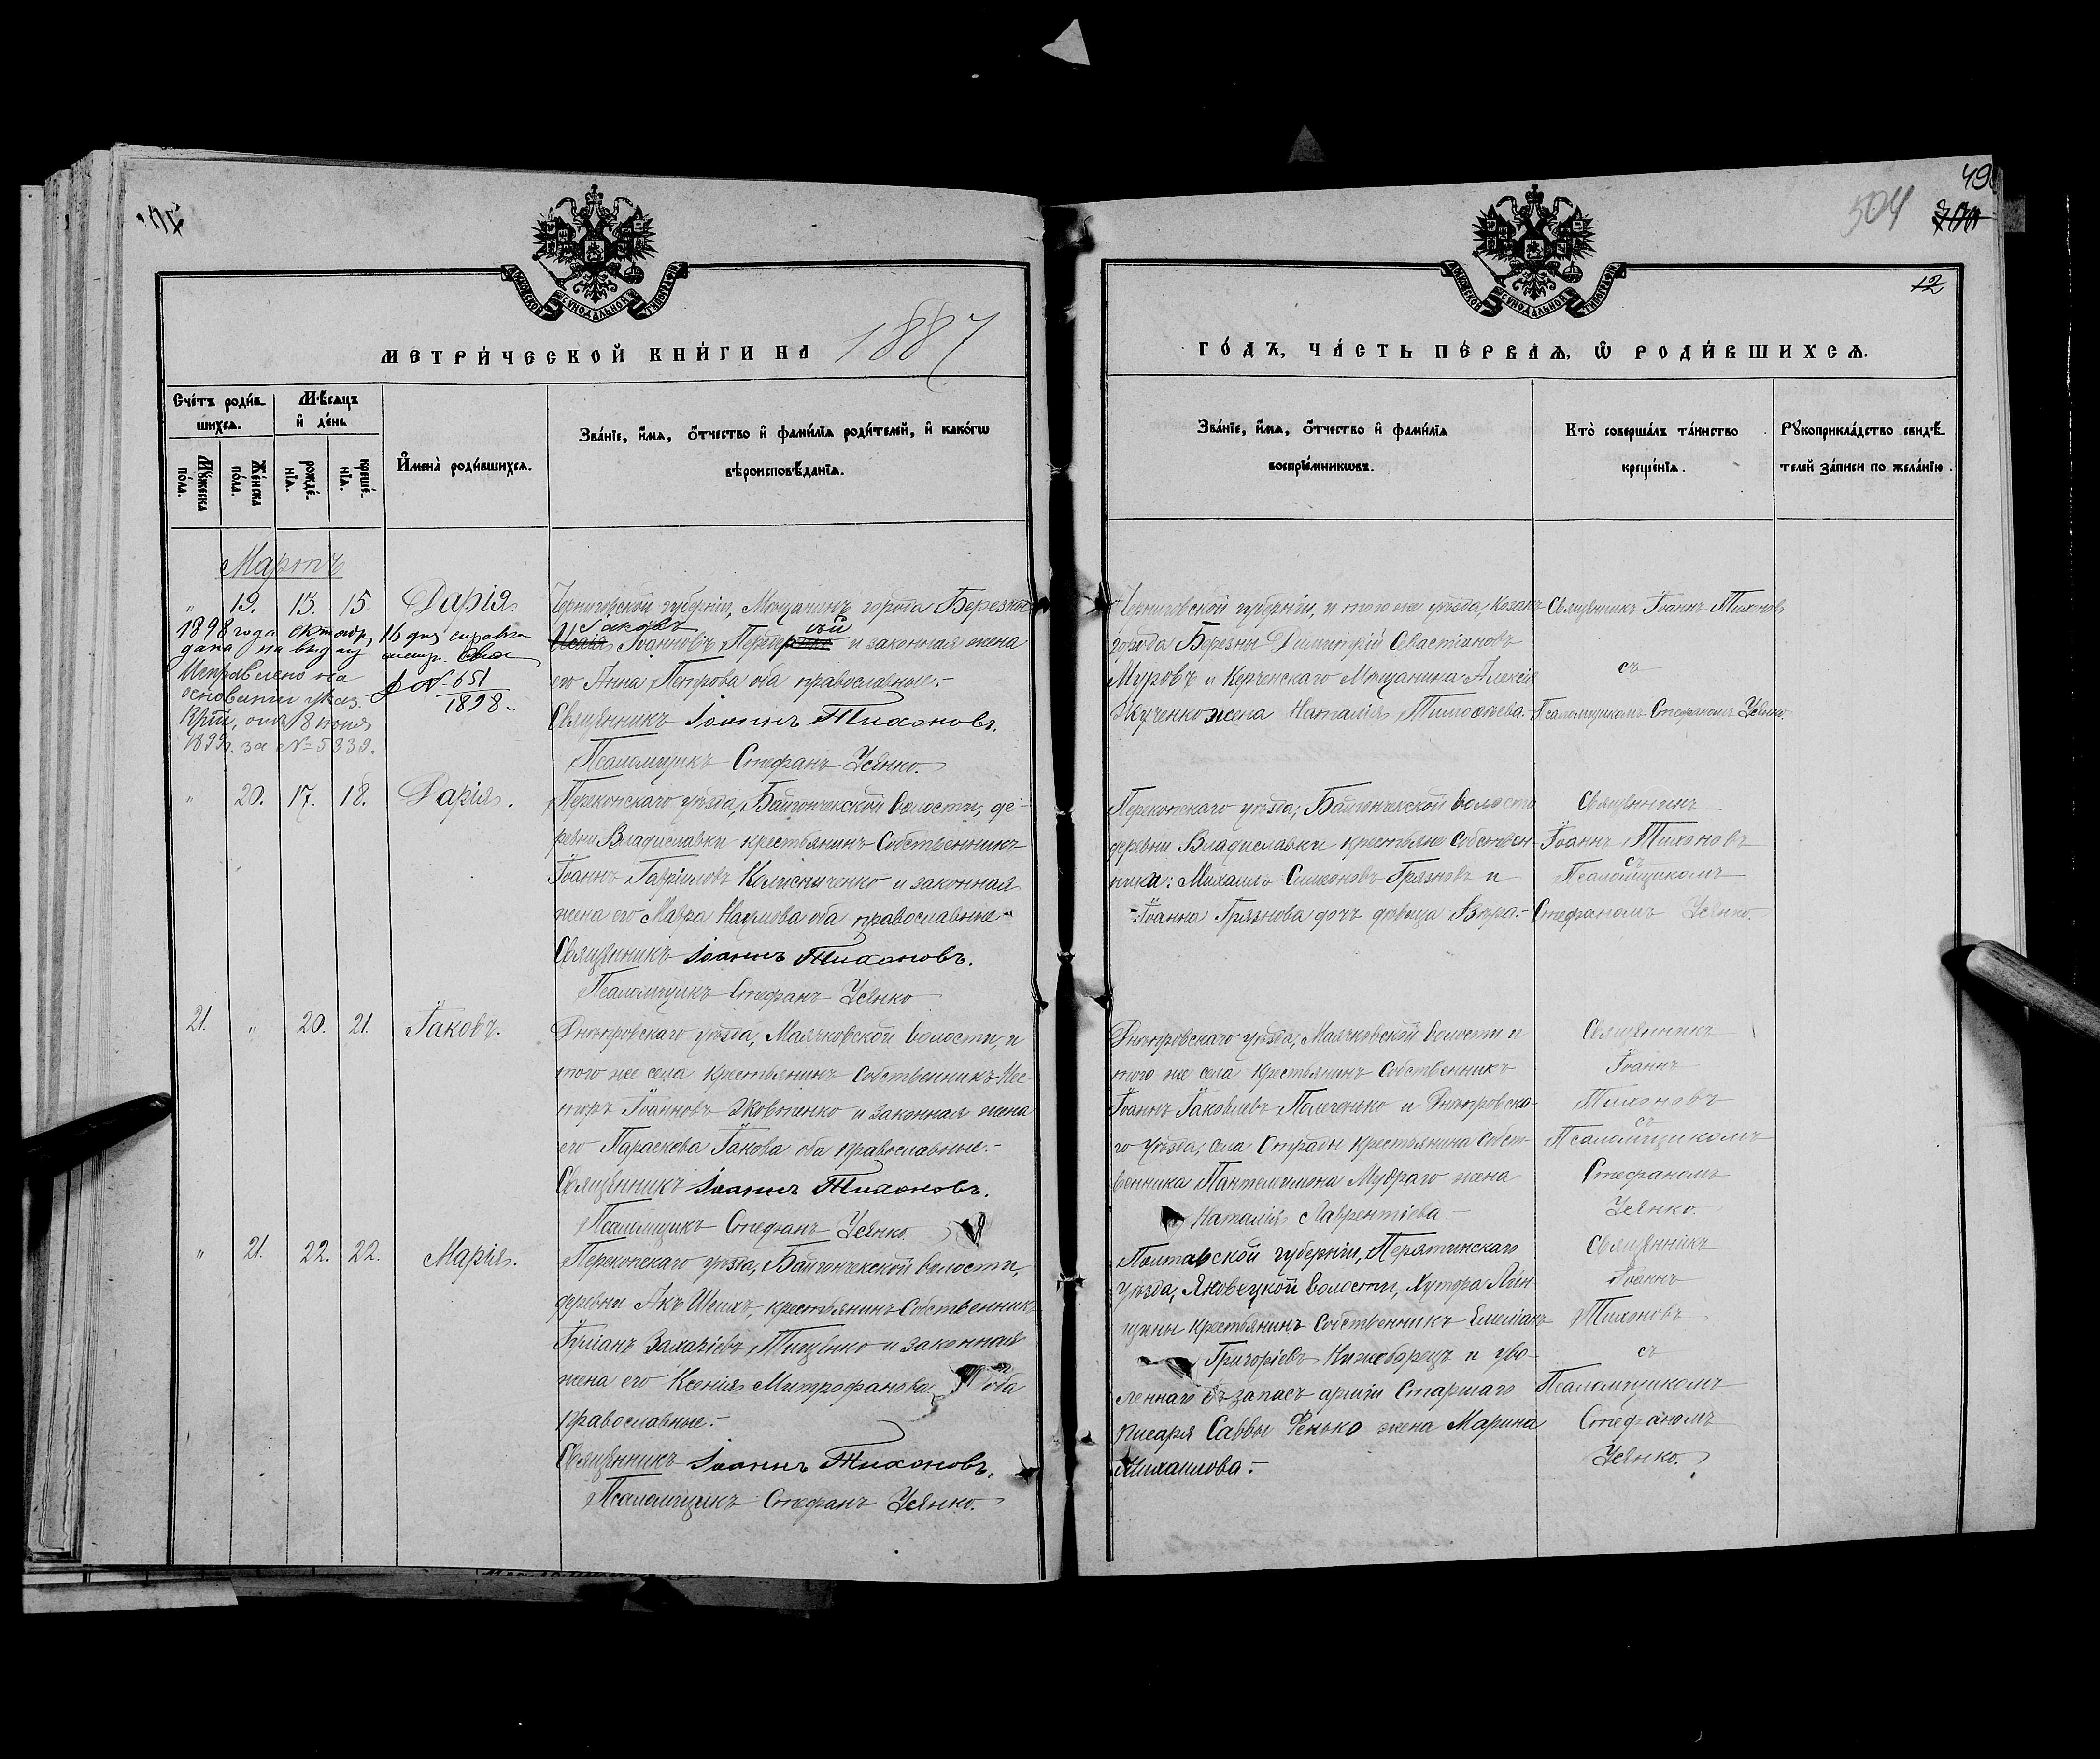 504
49
12
МЕТРИ́ЧЕСКОЙ КНИ́ГИ НА 1887
Сче́тъ роди́в-
шихсѧ.
Мѣ́сѧцъ
и҆ де́нь
Мꙋ́жеска
по́ла.
Же́нска
по́ла.
рожде́-
нїѧ.
креще́-
нїѧ.
И҆мена̀ роди́вшихсѧ.
Зва́нїе, и҆́мѧ, ѻ҆́тчество и҆ фами́лїѧ роди́телей, и҆ како́гѡ
вѣроисповѣ́данїѧ.
Мартъ
" 19. 13. 15. Дарія.
1898 года октобр. 16 дня справка
дана на выдачу метр. свид.
№ 651
1898.
Исправлено на
основаніи указ.
отъ 18 іюня
1899 г. за № 5339.
Черниговской губерніи, Мѣщанинъ города Березны
Іаковъ
Исаія Іоанновъ и законная жена
его Анна Петрова оба православные.-
Священникъ Іоаннъ Тихоновъ.
Псаломщикъ Стефанъ Усѣнко.
" 20. 17. 18. Дарія.
Перекопскаго уѣзда, Байгончекской волости, де-
ревни Владиславки крестьянинъ Собственникъ
Іоаннъ Гавріиловъ Колисниченко и законная
жена его Мавра Наумова оба православные-
Священникъ Іоаннъ Тихоновъ.
Псаломщикъ Стефанъ Усѣнко
21. " 20. 21. Іаковъ.
Днѣпровскаго уѣзда, Маячковской волости, и
того же села крестьянинъ Собственникъ Нес-
торъ Іоанновъ Жовтенко и законная жена
его Параскева Іакова оба православные.-
Священникъ Іоаннъ Тихоновъ.
Псаломщикъ Стефанъ Усѣнко.
" 21. 22. 22. Марія.
Перекопскаго уѣзда, Байгончекской волости,
деревни Акъ Шеихъ, крестьянинъ Собственникъ
Іуліанъ Захаріевъ Тищенко и законная
жена его Ксенія Митрофанова оба
православные.-
Священникъ Іоаннъ Тихоновъ.
Псаломщикъ Стефанъ Усѣнко.
ГО́ДЪ, ЧА́СТЬ ПЕ́РВАѦ, Ѡ҆ РОДИ́ВШИХСѦ.
Зва́нїе, и҆́мѧ, ѻ҆́тчество и҆ фами́лїѧ
воспрїе́мникѡвъ.
Кто̀ соверша́лъ та́инство
креще́нїѧ.
Рꙋкоприкла́дство свидѣ́-
телей за́писи по жела́нїю.
Черниговской губерніи, и того же уѣзда, козакъ
города Березны Димитрій Севастіановъ
Муровъ и Керченскаго Мѣщанина Алексія
жена Наталія Тимоѳеева.
Священникъ Іоаннъ Тихоновъ
съ
Псаломщикомъ Стефаномъ Усѣнко.
Перекопскаго уѣзда, Байгончекской волости
деревни Владиславки крестьяне Собствен-
ника: Михаилъ Симеоновъ Грязновъ и
Іоанна Грязнова дочь дѣвица Вѣра.-
Священникъ
Іоаннъ Тихоновъ
съ
Псаломщикомъ
Стефаномъ Усѣнко.
Днѣпровскаго уѣзда, Маячковской волости и
того же села крестьянинъ Собственникъ
Іоаннъ Іаковлевъ и Днѣпровска-
го уѣзда, села крестьянина Собст-
венника Пантелимона Мудраго жена
Наталія Лаврентіева.-
Священникъ
Іоаннъ
Тихоновъ
съ
Псаломщикомъ
Стефаномъ
Усѣнко.
Полтавской губерніи, Пирятинскаго
уѣзда, Яновецкой волости, Хутора
крестьянинъ Собственникъ Емеліанъ
Григоріевъ Нижеборецъ и уво-
леннаго въ запасъ арміи Старшаго
писаря Саввы Фенько жена Марина
Михаилова.-
Священникъ
Іоаннъ
Тихоновъ
съ
Псаломщикомъ
Стефаномъ
Усѣнко.